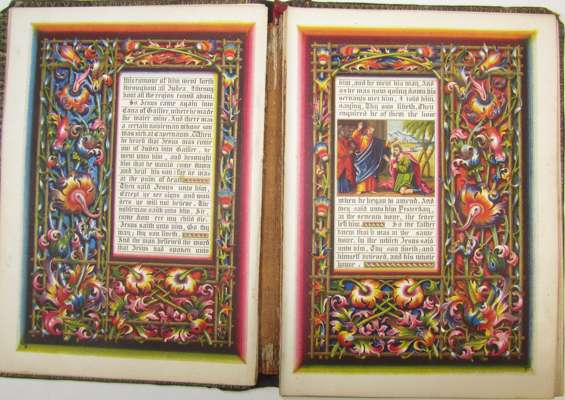 this rumour of him went forth
throughout all Judea, & through-
hout all the region round about.
So Jesus came again into
Cana of Galilee, where he made
the water wine. And there was
a certain nobleman whose son
was sick at Capernaum. When
he heard that Jesus was come
out of Judea into Galilee, he
went unto him, and besought
him that he would come down
and heal his son: for he was
at the point of death.
Then said Jesus unto him,
Except ye see signs and won-
ders ye will not believe. The
nobleman saith unto him, Sir,
come down ere my child die.
Jesus saith unto him, Go thy
way; thy son liveth.
And the man believed the word
that Jesus had spoken unto
him, and he went his way. And
as he was now going down his
servants met him, & told him,
saying, Thy son liveth. Then
enquired he of them the hour
when he began to amend. And
they said unto him Yesterday,
at the seventh hour, the fever
left him. So the father
knew that it was at the same
hour, in the which Jesus said
unto him, Thy son liveth: and
himself believed, and his whole
house.